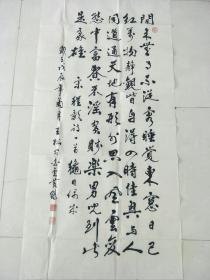 閑来無事不從容睡覺東窗日已
紅萬物靜觀皆自得四時佳興與人
同道通天地有形外思入風雲變
態中富貴不淫貧賤樂男兒到此
是豪雄 宋程顥詩一首 秋日偶成
戊辰年 月 王